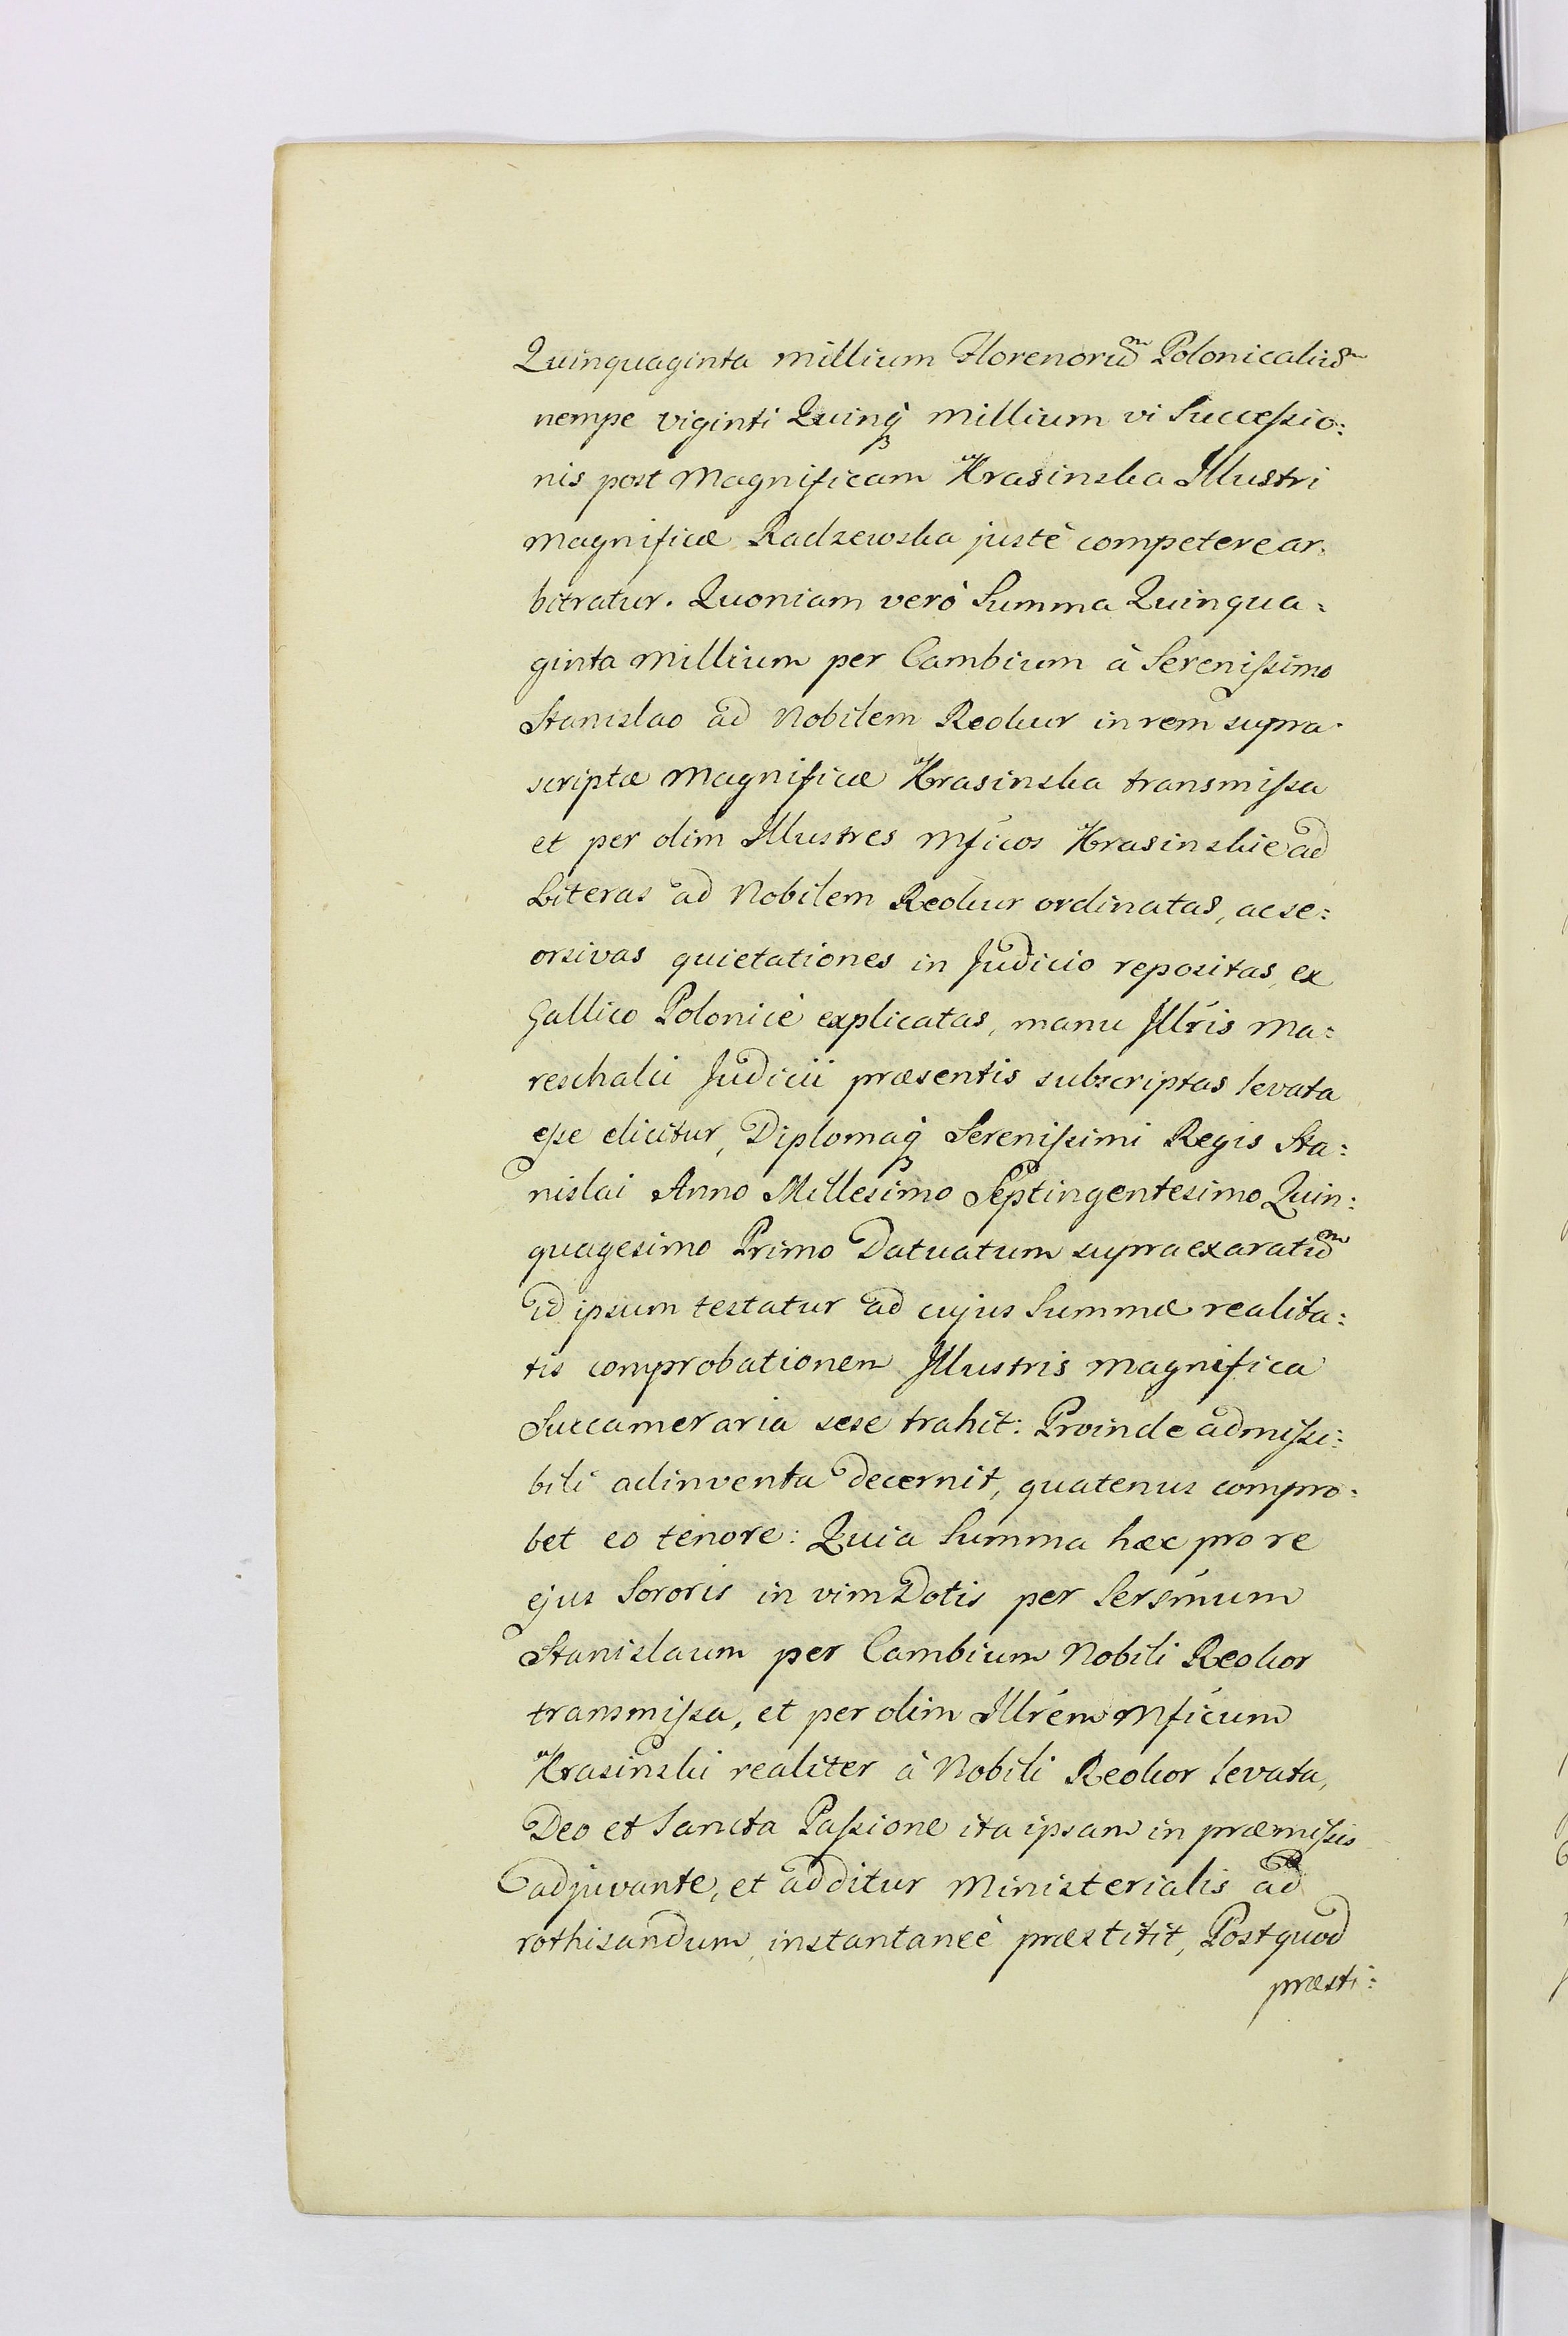 Quinquaginta millium Florenorũm Polonicaliũm
nempe viginti Quinq3 millium vi Succeſsio:
nis post Magnificam Krasinska Illustri
Magnificæ Radzewska justè competere ar:
bitratur. Quoniam verò Summa Quinqua:
ginta millium per Cambium à Sereniſsimo
Stanislao ad Nobilem Reokur in rem supra:
scriptæ Magnificæ Krasinska transmiſsa
et per olim Illustres Mficos Krasinskie ad
Literas ad Nobilem Reokur ordinatas, ac se:
orsivas quietationes in Judicio repositas, ex
Gallico Polonicè explicatas, manu Illris Ma:
reschalci Judicii præsentis subscriptas levata
eſse dicitur, Diplomaq3 Sereniſsimi Regis Sta:
nislai Anno Millesimo Septingentesimo Quin:
quagesimo Primo Datuatum supraexaratũm
id ipsum testatur ad cujus Summæ realita:
tis comprobationem Illustris Magnifica
Succameraria sese trahit: Proinde admiſsi:
bili adinventa decernit, quatenus compro:
bet eo tenore: Quia Summa hæc pro re
ejus Sororis in vim Dotis per Sersmum
Stanislaum per Cambium Nobili Reokor
transmiſsa, et per olim Illrem Mficum
Krasinski realiter à Nobili Reokor levata,
Deo et Sancta Paſsione ita ipsam in præmiſsis
adjuvante, et additur Ministerialis ad
rothisandum, instantaneè præstitit, Postquod
præsti: